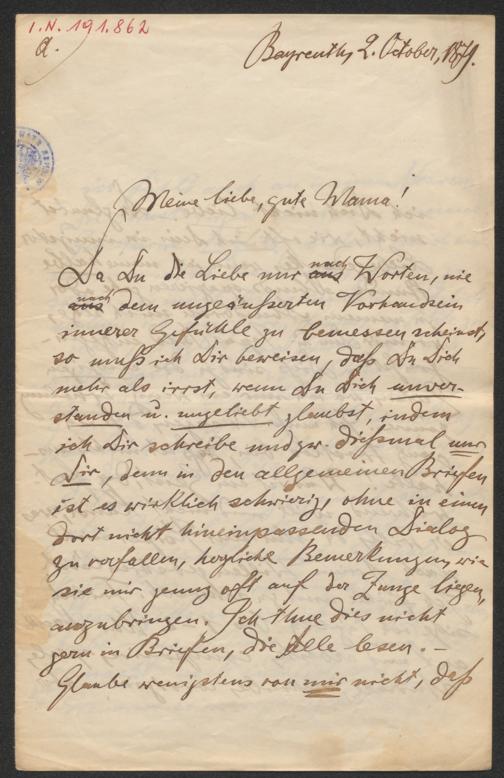 I.N. 191.862
a.
Bayreuth, 2. October, 1879.
Meine liebe, gute Mama!
Da Du die Liebe nur aus nach Worten, nie
aus nach dem ungeäusserten Vorhandsein
innerer Gefühle zu bemessen scheinst,
so muß ich Dir beweisen, daß Du Dich
mehr als irrst, wenn Du Dich unver-
standen u. ungeliebt glaubst, indem
ich Dir schreibe und zw. dießmal nur
Dir, denn in den allgemeinen Briefen
ist es wirklich schwierig, ohne in einen
dort nicht hineinpassenden Dialog
zu verfallen, herzliche Bemerkungen, wie
sie mir genug oft auf der Zunge liegen,
anzubringen. Ich thue dies nicht
gern in Briefen, die Alle lesen. –
Glaube wenigstens von mir nicht, daß